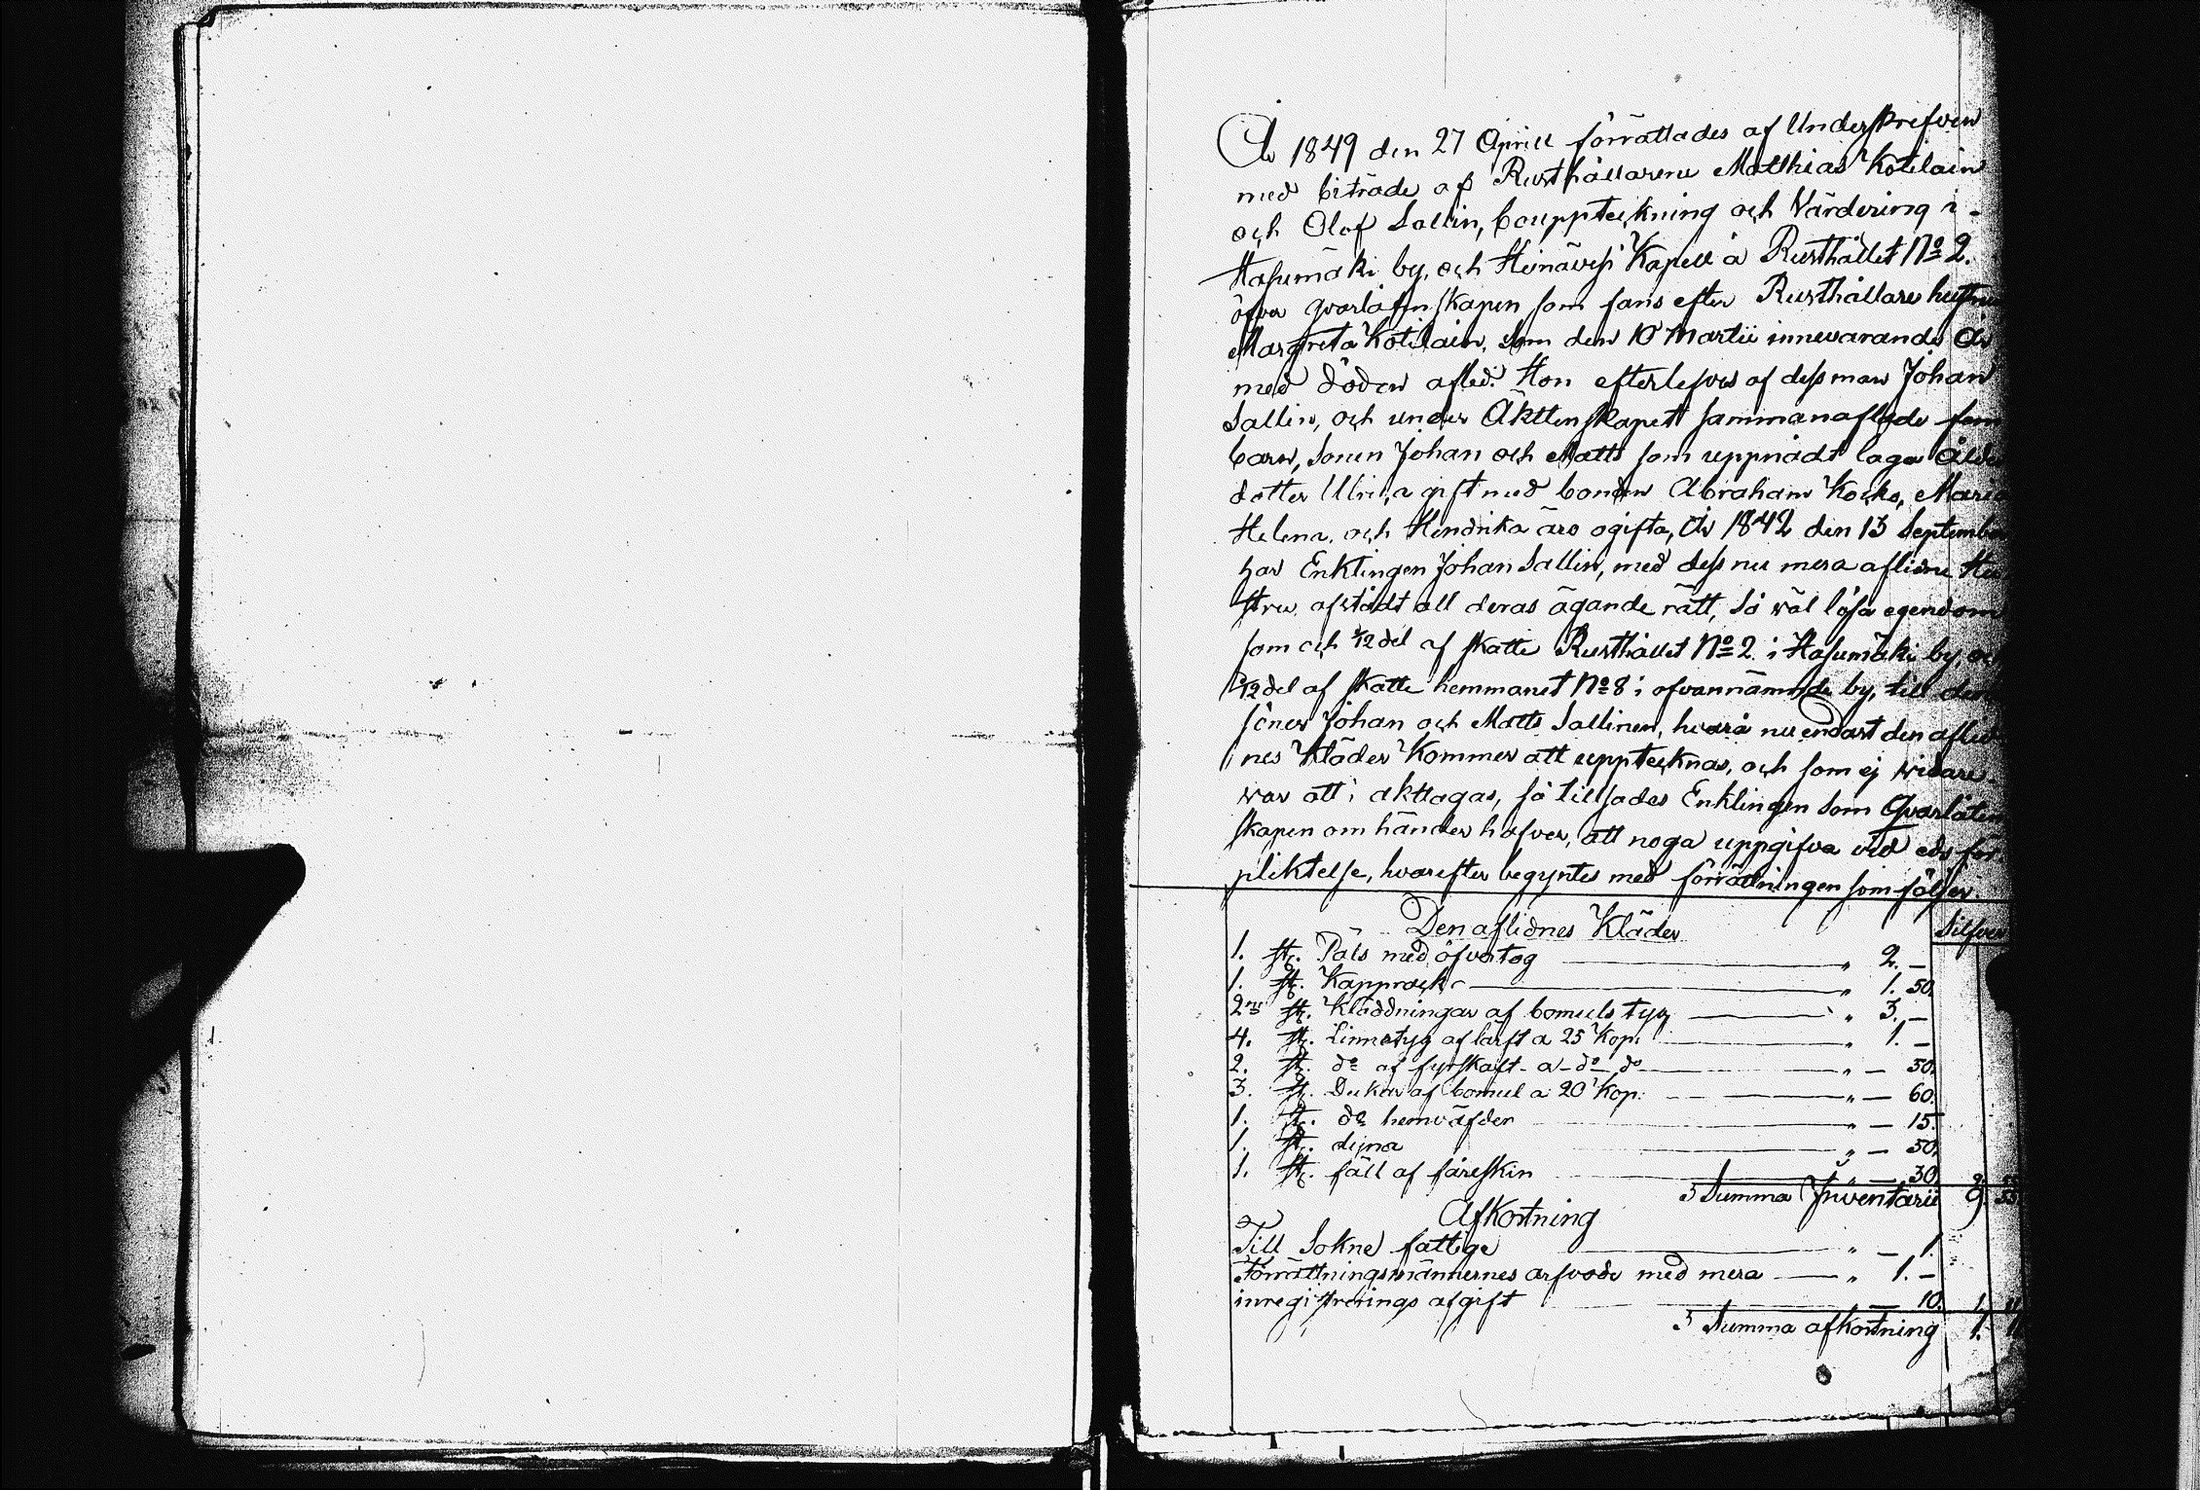 År 1849 den 27 Aprill förrättades af Underskrifven
med biträde af Rusthållarene Matthias Kotilain
och Olof Sallin, bouppteckning och Värdering i
Hasumäki by, och Heinävesi Kapell å Rusthållet No 2.
öfver qvarlåtenskapen som fans efter Rusthållare hustrun
Margreta Kotilain, som den 10 Martii innevarande År
med döden afled. Hon efterlefves af dess man Johan
Sallin, och under Äktenskapett sammanaflade fem
barn, sonen Johan och Matts som uppnådt laga Ålder
dotter Ulrica gift med bonden Abraham Kocko, Maria
Helena, och Hendrika äro ogifta, År 1842 den 13 September
har Enklingen Johan Sallin, med dess nu mera aflidne Hu
stru afstådt all deras ägande rätt, så wäl lösa egendom
som och 1/12 del af skatte Rusthållet No 2 i Hasumäki by, och
1/12 del af skatte hemmanet No 8 i ofvannämnde by, till
söner Johan och Matts Sallinen, hvarå nu endast den aflid
nes Kläder Kommer att upptecknas, och som ej widare
war att i akttagas, så tillsades Enklingen som Qvarlåten
skapen om händer hafver, att noga uppgifva vid eds för
pliktelse, hvarefter begyntes med förrättningen som följer.
Den aflidnes Kläder Silfver
1. st. Päls med öfvertog " 2. –
1. st. Kapprock " 1. 50.
2ne st. Kläddningar af bomuls tyg " 3. –
4. st. Linnetyg af lärft a 25 Kop. " 1. –
2. st. do af fyrskaft a do do " – 50.
3. st. Dukar af bomul a 20 Kop. " – 60.
1. st. do hemväfder " – 15.
1. st. dyna " – 50.
1. st. fäll af fåreskin " – 30.
Summa Inventarii 9. 55
Afkortning
Till Sokne fattige " – 1.
Förrättningsmännernes arfvode med mera " 1. –
inregistrerings afgift – 10. 1. 11
Summa afkortning 1. 11